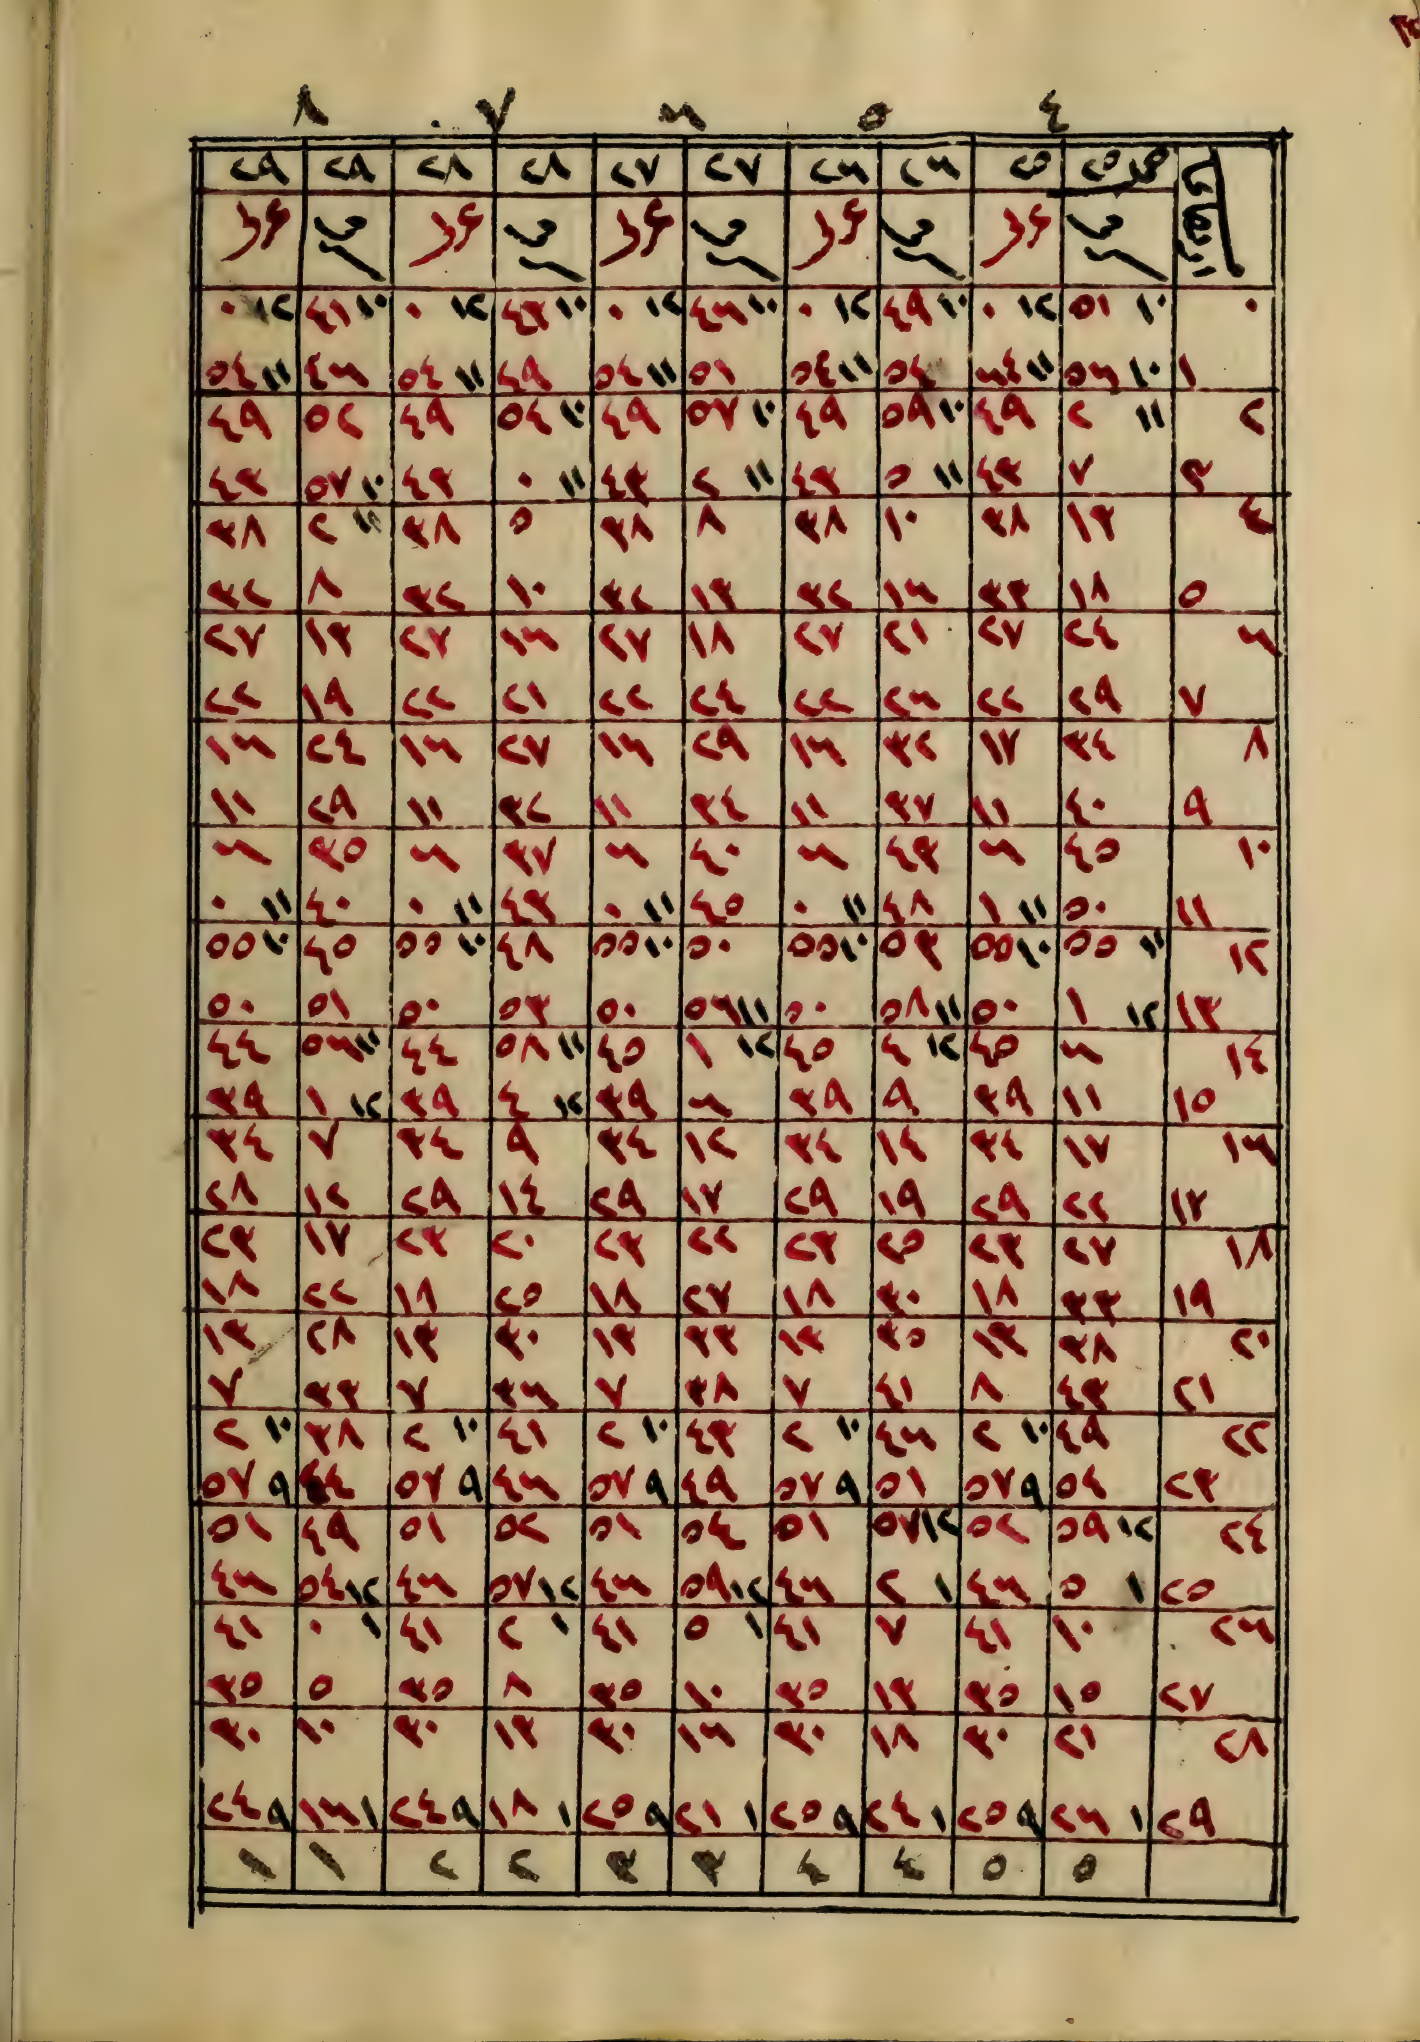 ٤ ٥ ٦ ٧ ٨
٢٥ ٢٥ ٢٦ ٢٦ ٢٧ ٢٧ ٢٨ ٢٨ ٢٩ ٢٩
٠ ١٠ ٥١ ١٢ ٠ ١٠ ٤٩ ١٢ ٠ ١٠ ٤٦ ١٢ ٠ ١٠ ٤٣ ١٢ ٠ ١٠ ٤١ ١٢ ٠
١ ١٠ ٥٦ ١١ ٦٤ ٥٤ ١١ ٥٤ ٥١ ١١ ٥٤ ٤٩ ١١ ٥٤ ٤٦ ١١ ٥٤
٢ ١١ ٢ ٤٩ ١٠ ٥٩ ٤٩ ١٠ ٥٧ ٤٩ ١٠ ٥٤ ٤٩ ٥٢ ٤٩
٣ ٧ ٤٣ ١١ ٥ ٤٣ ١١ ٢ ٤٣ ١١ ٠ ٤٣ ١٠ ٥٧ ٤٣
٤ ١٣ ٣٨ ١٠ ٣٨ ٨ ٣٨ ٥ ٣٨ ١١ ٢ ٣٨
٥ ١٨ ٣٣ ١٦ ٣٢ ١٣ ٣٢ ١٠ ٣٢ ٨ ٣٢
٦ ٢٤ ٢٧ ٢١ ٢٧ ١٨ ٢٧ ١٦ ٢٧ ١٣ ٢٧
٧ ٢٩ ٢٢ ٢٦ ٢٢ ٢٤ ٢٢ ٢١ ٢٢ ١٩ ٢٢
٨ ٣٤ ١٧ ٣٢ ١٦ ٢٩ ١٦ ٢٧ ١٦ ٢٤ ١٦
٩ ٤٠ ١١ ٣٧ ١١ ٣٤ ١١ ٣٢ ١١ ٢٩ ١١
١٠ ٤٥ ٦ ٤٣ ٦ ٤٠ ٦ ٣٧ ٦ ٣٥ ٦
١١ ٥٠ ١١ ١ ٤٨ ١١ ٠ ٤٥ ١١ ٠ ٤٣ ١١ ٠ ٤٠ ١١ ٠
١٢ ١١ ٥٥ ١٠ ٥٥ ٥٣ ١٠ ٥٥ ٥٠ ١٠ ٥٥ ٤٨ ١٠ ٥٥ ٤٥ ١٠ ٥٥
١٣ ١٢ ١ ٥٠ ١١ ٥٨ ٥٠ ١١ ٥٦ ٥٠ ٥٣ ٥٠ ٥١ ٥٠
١٤ ٦ ٤٥ ١٢ ٤ ٤٥ ١٢ ١ ٤٥ ١١ ٥٨ ٤٤ ١١ ٥٦ ٤٤
١٥ ١١ ٣٩ ٩ ٣٩ ٦ ٣٩ ١٢ ٤ ٣٩ ١٢ ١ ٣٩
١٦ ١٧ ٣٤ ١٤ ٣٤ ١٢ ٣٤ ٩ ٣٤ ٧ ٣٤
١٧ ٢٢ ٢٩ ١٩ ٢٩ ١٧ ٢٩ ١٤ ٢٩ ١٢ ٢٨
١٨ ٢٧ ٢٣ ٢٥ ٢٣ ٢٢ ٢٣ ٢٠ ٢٣ ١٧ ٢٣
١٩ ٣٣ ١٨ ٣٠ ١٨ ٢٧ ١٨ ٢٥ ١٨ ٢٢ ١٨
٢٠ ٣٨ ١٣ ٣٥ ١٣ ٣٣ ١٣ ٣٠ ١٣ ٢٨ ١٣
٢١ ٤٣ ٨ ٤١ ٧ ٣٨ ٧ ٣٦ ٧ ٣٣ ٧
٢٢ ٤٩ ١٠ ٢ ٤٦ ١٠ ٢ ٤٣ ١٠ ٢ ٤١ ١٠ ٢ ٣٨ ١٠ ٢
٢٣ ٥٤ ٩ ٥٧ ٥١ ٩ ٥٧ ٤٩ ٩ ٥٧ ٤٦ ٩ ٥٧ ٤٤ ٩ ٥٧
٢٤ ١٢ ٥٩ ٥٢ ١٢ ٥٧ ٥١ ٥٤ ٥١ ٥٢ ٥١ ٤٩ ٥١
٢٥ ١ ٥ ٤٦ ١ ٢ ٤٦ ١٢ ٥٩ ٤٦ ١٢ ٥٧ ٤٦ ١٢ ٥٤ ٤٦
٢٦ ١٠ ٤١ ٧ ٤١ ١ ٥ ٤١ ١ ٢ ٤١ ١ ٠ ٤١
٢٧ ١٥ ٣٥ ١٣ ٣٥ ١٠ ٣٥ ٨ ٣٥ ٥ ٣٥
٢٨ ٢١ ٣٠ ١٨ ٣٠ ١٦ ٣٠ ١٣ ٣٠ ١٠ ٣٠
٢٩ ١ ٢٦ ٩ ٢٥ ١ ٢٤ ٩ ٢٥ ١ ٢١ ٩ ٢٥ ١ ١٨ ٩ ٢٤ ١ ١٦ ٩ ٢٤
٥ ٥ ٤ ٤ ٣ ٣ ٢ ٢ ١ ١